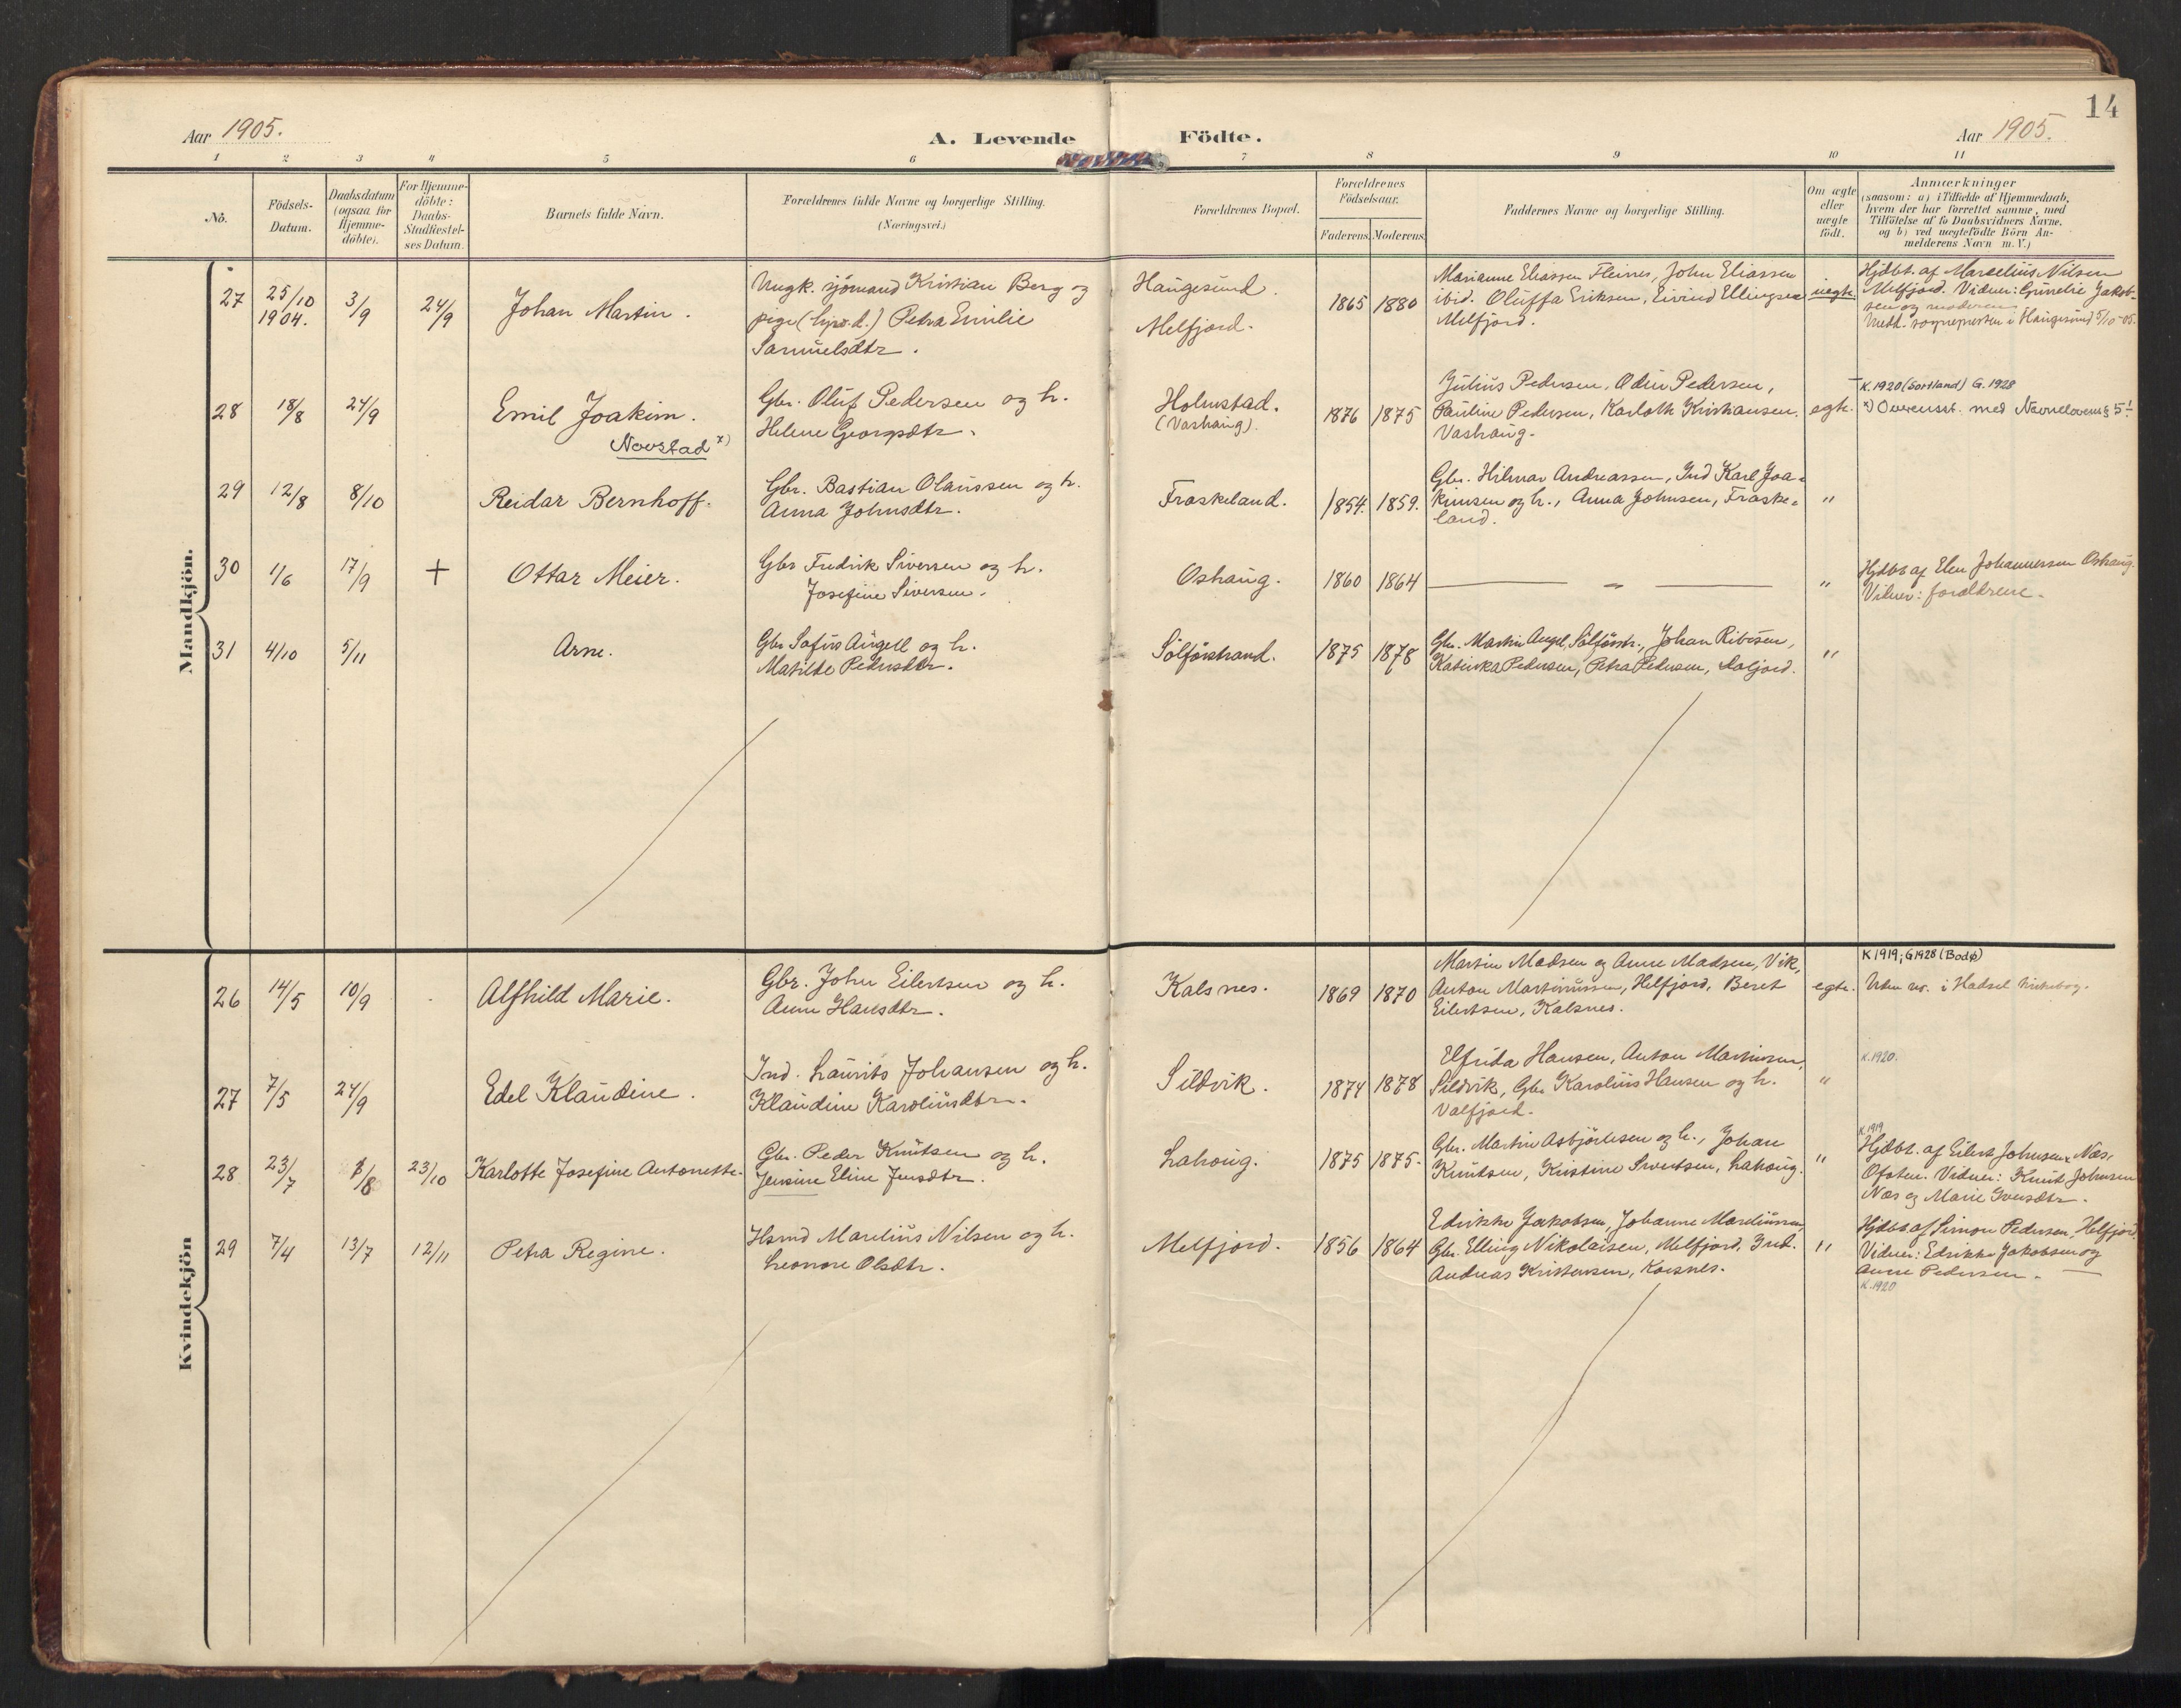 14
Aar 1905.
A. Levende Födte.
Aar 1905.
1 2 3 4 5 6 7 8 9 10 11
No.
Födsels-
Datum.
Daabsdatum
(ogsaa for
Hjemme-
döbte).
For Hjemme-
döbte:
Daabs-
Stadfæstel-
ses Datum.
Barnets fulde Navn.
Forældrenes fulde Navne og borgerlige Stilling.
(Næringsvei.)
Forældrenes Bopæl.
Forældrenes
Födselsaar.
Faderens. Moderens.
Faddernes Navne og borgerlige Stilling.
Om ægte
eller
uægte
födt.
Anmærkninger
(saasom: a) i Tilfælde af Hjemmedaab,
hvem der har forrettet samme, med
Tilföielse af to Daabsvidners Navne,
og b) ved uægtefödte Börn An-
melderens Navn m. V.)
Mandkjön.
27
25/10
1904.
3/9
24/9
Johan Martin.
Ungk. sjömand Kristian Berg og
pige Petra Emilie
Samuelsdtr.
Haugesund.
Melfjord.
1865 1880
Marianne Eliassen Fleines, John Eliassen
ibid. Oluffa Eriksen, Eivind Ellingsen
Melfjord.
uegte
Hjdbt. af Marcelius Nilsen
Melfjord. Vidner: Gunelie Jakob-
sen og moderen
Medd. sognepresten i Haugesund 5/10-05.
28
18/8
24/9
Emil Joakim.
Novstad x)
Gbr. Oluf Pedersen og h.
Helene Georgsdtr.
Holmstad.
(Vashaug).
1876 1875
Julius Pedersen, Odin Pedersen,
Pauline Pedersen, Karloth Kristiansen.
Vashaug.
egte.
K. 1920 (Sortland) G. 1928
x) Overensst. med Navnelovens § 5
29
12/8
8/10
Reidar Bernhoff.
Gbr. Bastian Olaussen og h.
Anna Johnsdtr.
Fraskeland.
1854. 1859.
Gbr. Hilmar Andreassen, Ind Karl Joa-
kimsen og h., Anna Johnsen, Fraske-
land.
"
30
1/6
17/9
+
Ottar Meier.
Gbr Fredrik Siversen og h.
Josefine Siversen.
Oshaug.
1860 1864
— " —
"
Hjdbt af Elen Johannessen Oshaug.
Vidner: forældrene.
31
4/10
5/11
Arne.
Gbr Sofus Angell og h.
Matilde Pedersdtr.
Sölförstrand.
1875 1878
Gbr. Martin Angel, Sölförstr., Johan Ribesen,
Katinka Pedersen, Petra Pedersen,
"
Kvindekjön
26
14/5
10/9
Alfhild Marie.
Gbr. John Eilertsen og h.
Anne Hansdtr.
Kalsnes.
1869 1870
Martin Madsen og Anne Madsen, Vik,
Anton Martinussen, Helfjord, Beret
Eilertsen, Kalsnes.
egte.
K 1919; G 1928 (Bodø)
Uden no. i Hadsel kirkebog.
27
7/5
24/9
Edel Klaudine.
Ind. Laurits Johansen og h.
Klaudine Karoliusdtr.
Sildvik.
1874 1878
Elfrida Hansen, Anton Martinsen,
Sildvik, Gbr Karolius Hansen og h.
Valfjord.
"
K. 1920.
28
23/7
/8
23/10
Karlotte Josefine Antonette.
Gbr. Peder Knutsen og h.
Jensine Eline Jensdtr.
Lahaug.
1875 1875.
Gbr. Martin Asbjörnsen og h., Johan
Knutsen, Kristine Sivertsen, Lahaug.
"
K. 1919
Hjdbt. af Eilert Johnsen, Næs,
Ofoten. Vidner: Knut Johnsen
Næs og Marie Iversdtr.
29
7/4
13/7
12/11
Petra Regine.
Hsmd Marelius Nilsen og h.
Leonore Olsdtr.
Melfjord.
1856 1864
Edrikke Jakobsen, Johanne Mareliussen
Gbr. Elling Nikolaisen, Melfjord, Ind.
Andreas Kristensen, Korsnes.
"
Hjdbt af Simon Pedersen, Helfjord.
Vidner: Edrikke Jakobsen og
Anne Pedersen.
K. 1920